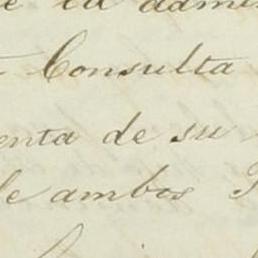 e la admin
Consulta
enta de su
de ambos